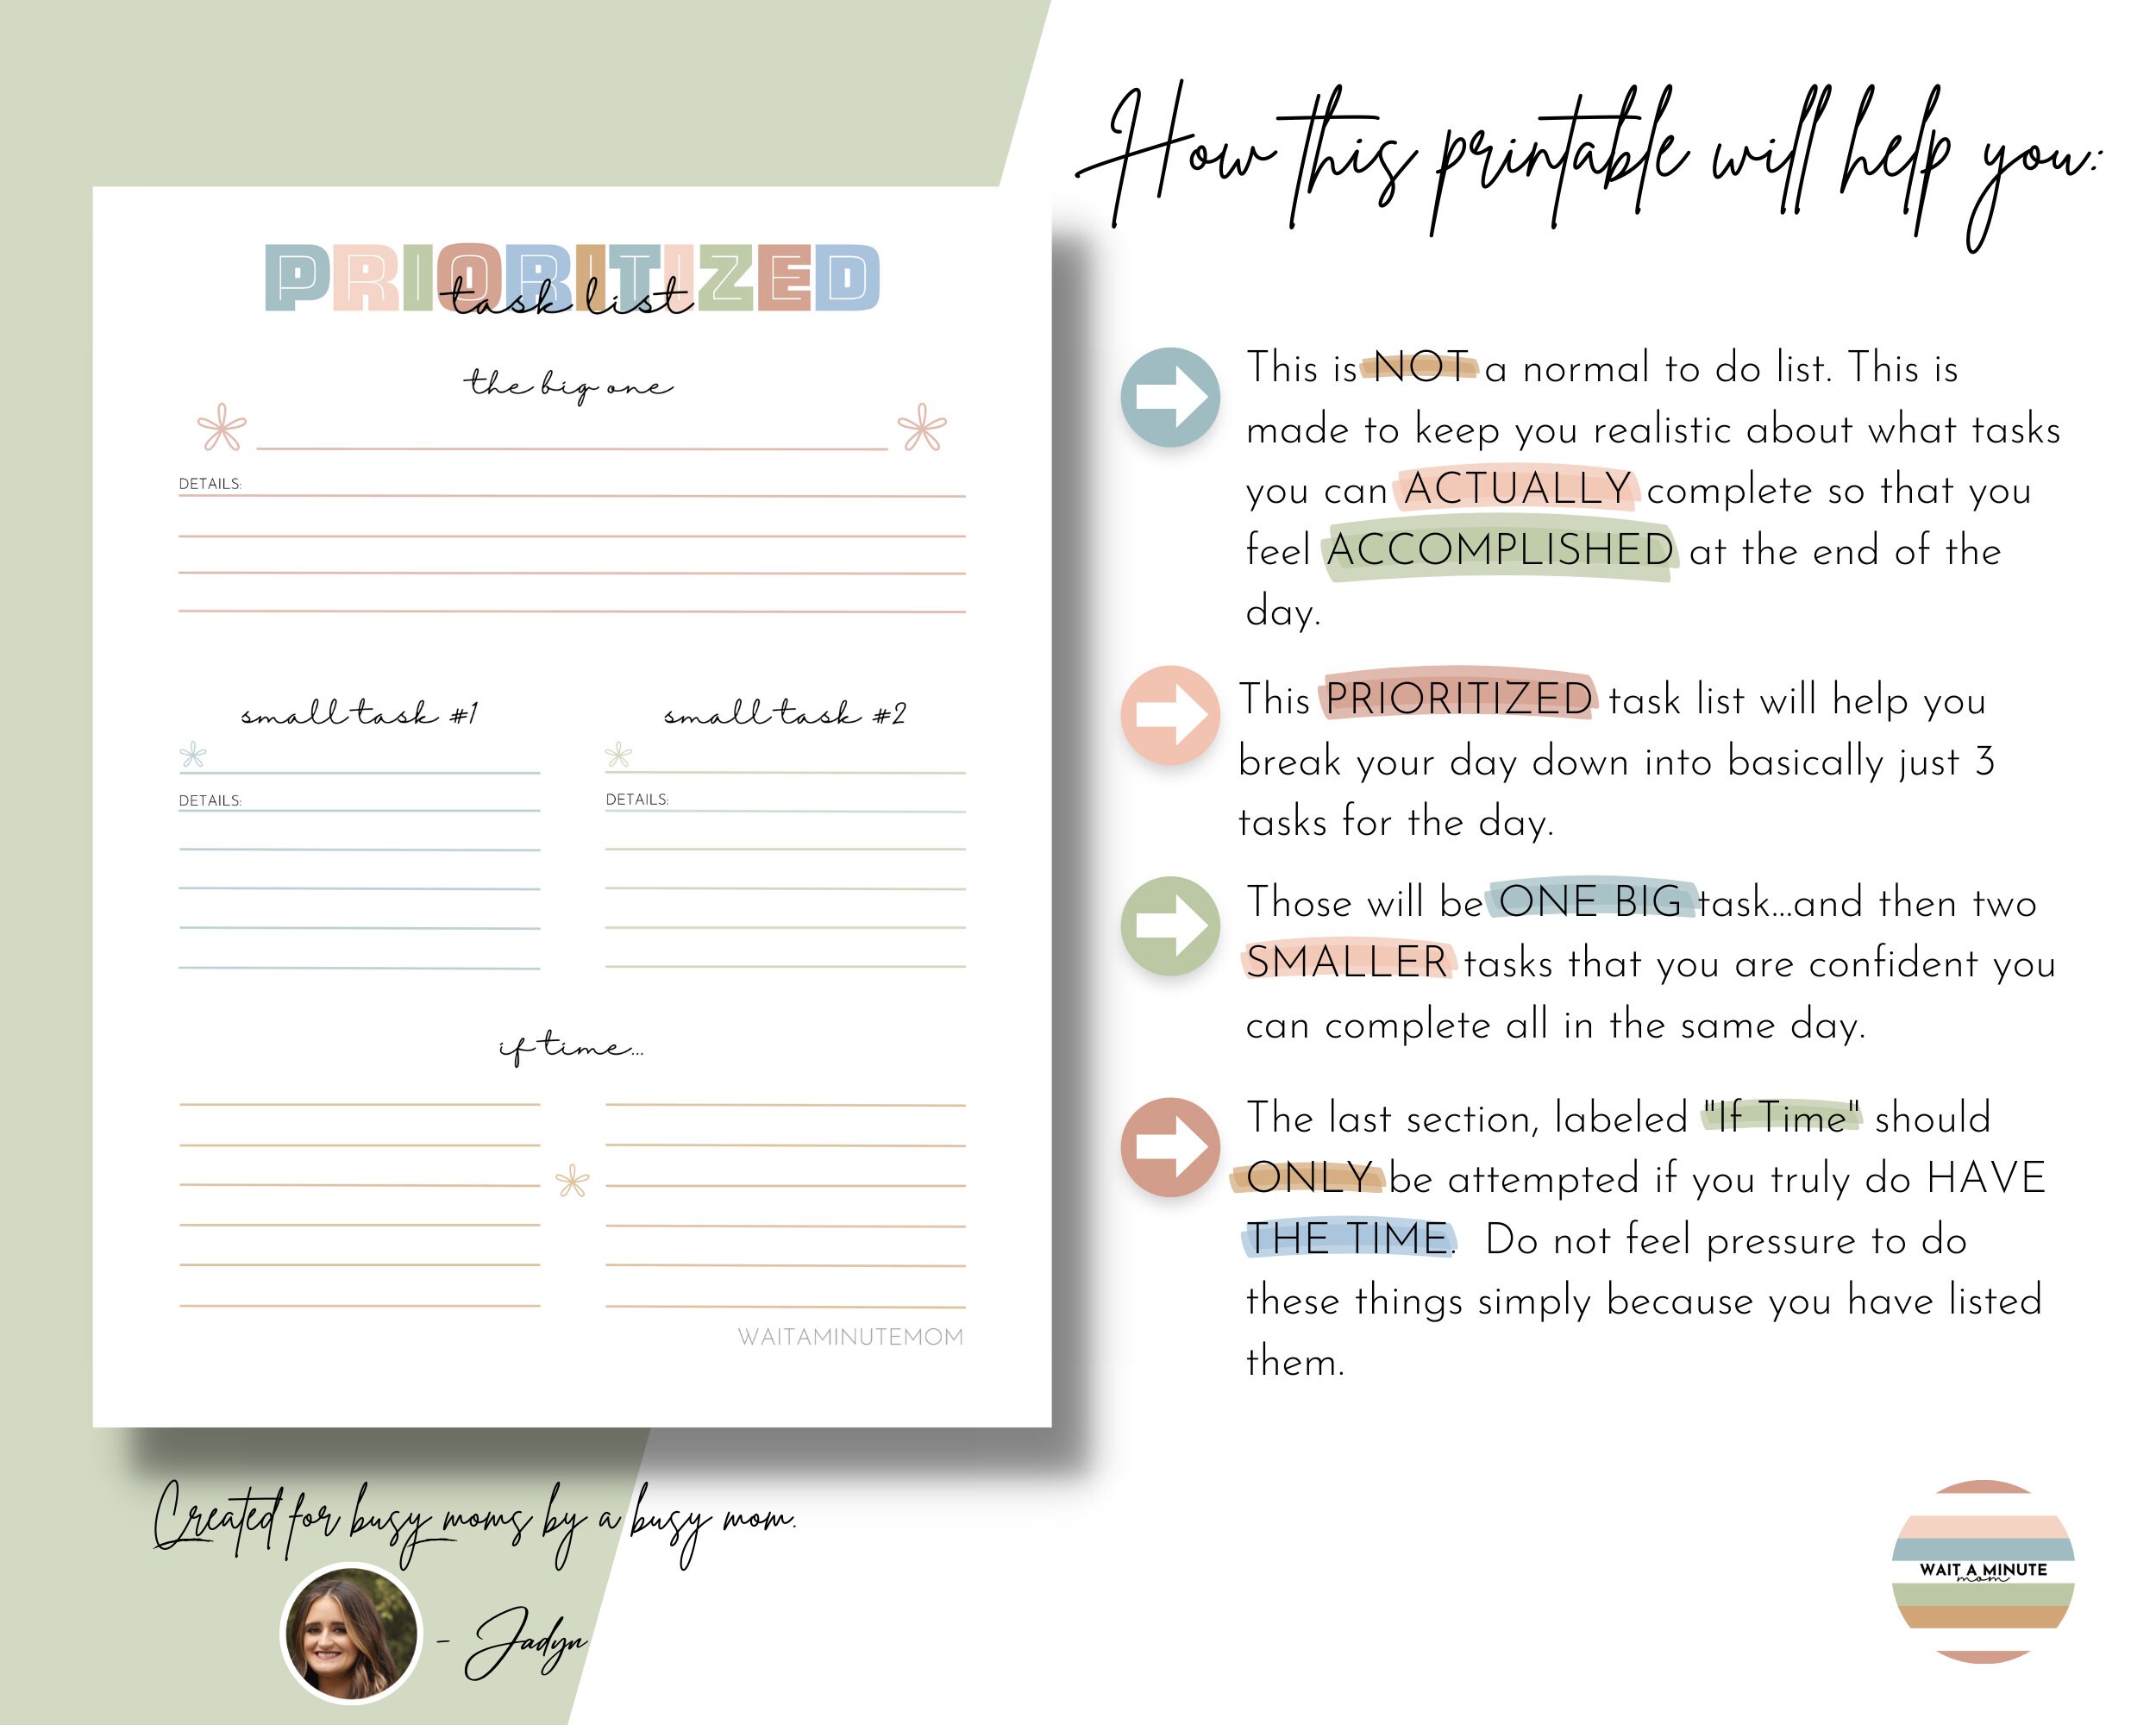 How this printable will help you:
PRIORITIZED
task list
the big one
DETAILS:
small task #1
small task #2
DETAILS:
DETAILS:
if time...
WAITAMINUTEMOM
This is NOT a normal to do list. This is
made to keep you realistic about what tasks
you can ACTUALLY complete so that you
feel ACCOMPLISHED at the end of the
day.
This PRIORITIZED task list will help you
break your day down into basically just 3
tasks for the day.
Those will be ONE BIG task...and then two
SMALLER tasks that you are confident you
can complete all in the same day.
The last section, labeled "If Time" should
ONLY be attempted if you truly do HAVE
THE TIME. Do not feel pressure to do
these things simply because you have listed
them.
Created for busy moms by a busy mom.
- Jadyn
WAIT A MINUTE
mom